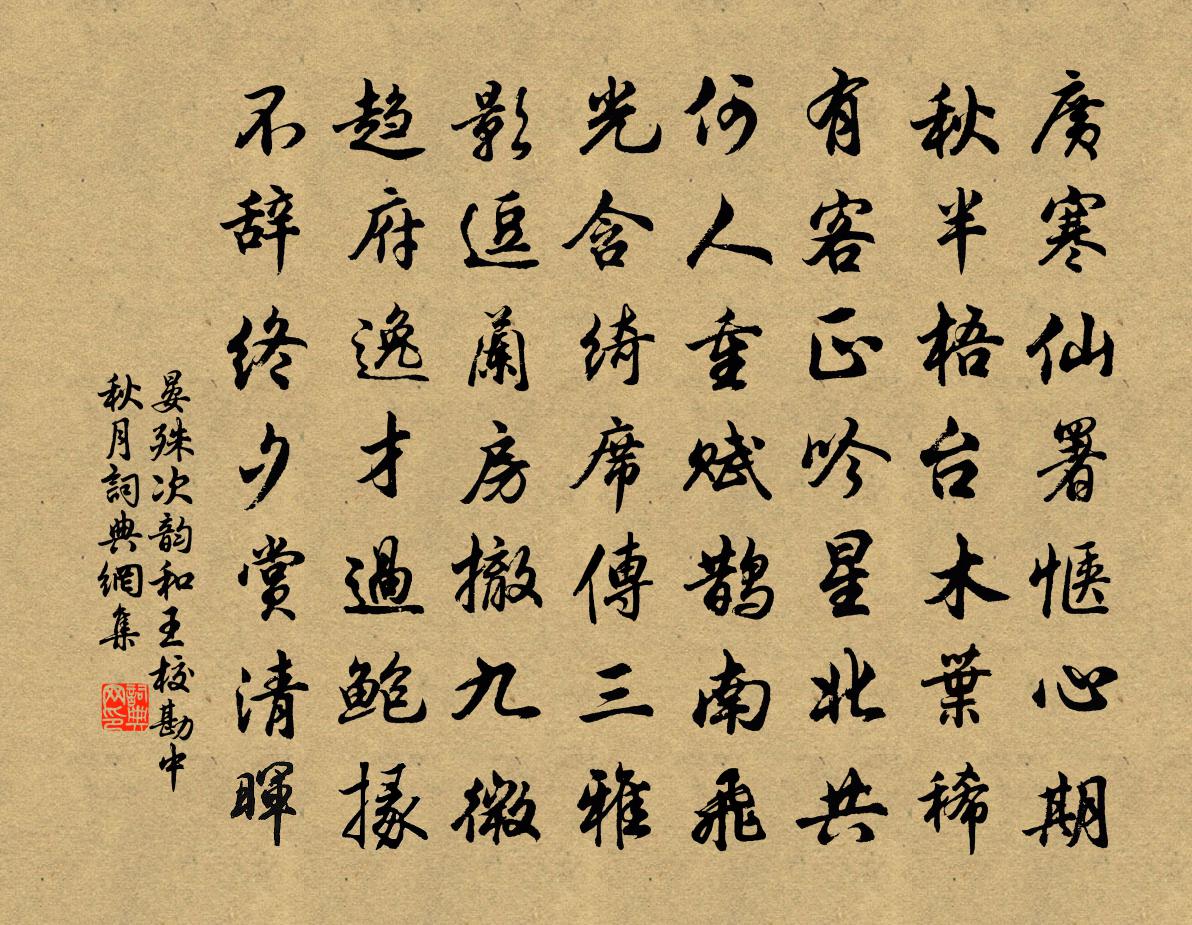 廣寒仙署愜心期
秋半梧台木葉稀
有客正吟星北共
何人重賦鵲南飛
光含綺席傳三雅
影逗蘭房撤九微
趙府逸才過鮑掾
不辞終夕賞清暉
晏殊次韵和王校勘中
秋月詞典網集
詞典网印